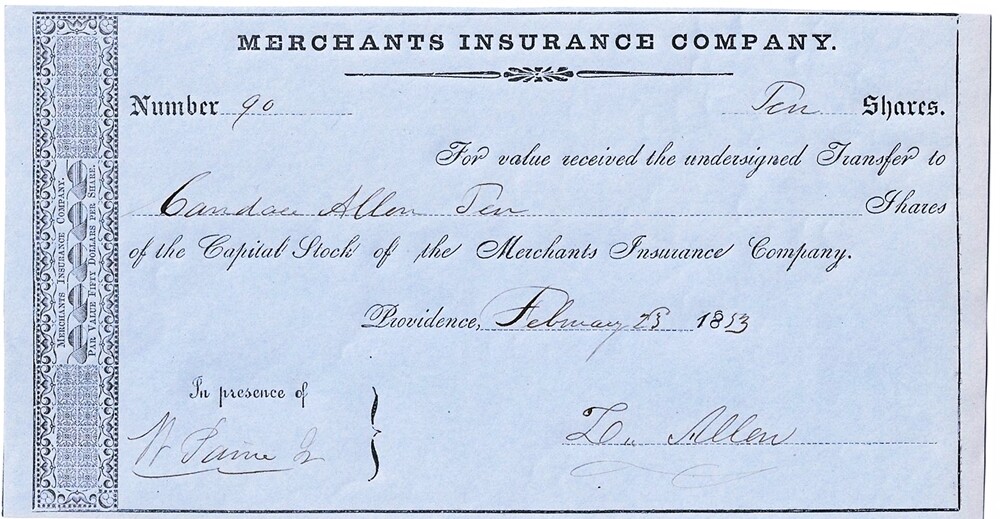 MERCHANTS INSURANCE COMPANY.
Number 90 Ten Shares.
For value received the undersigned Transfer to
Candace Allen Ten Shares
of the Capital Stock of the Merchants Insurance Company.
Providence, February 23 1853
In presence of
W Paine Jr
Z. Allen
MERCHANTS INSURANCE COMPANY.
PAR VALUE FIFTY DOLLARS PER SHARE.